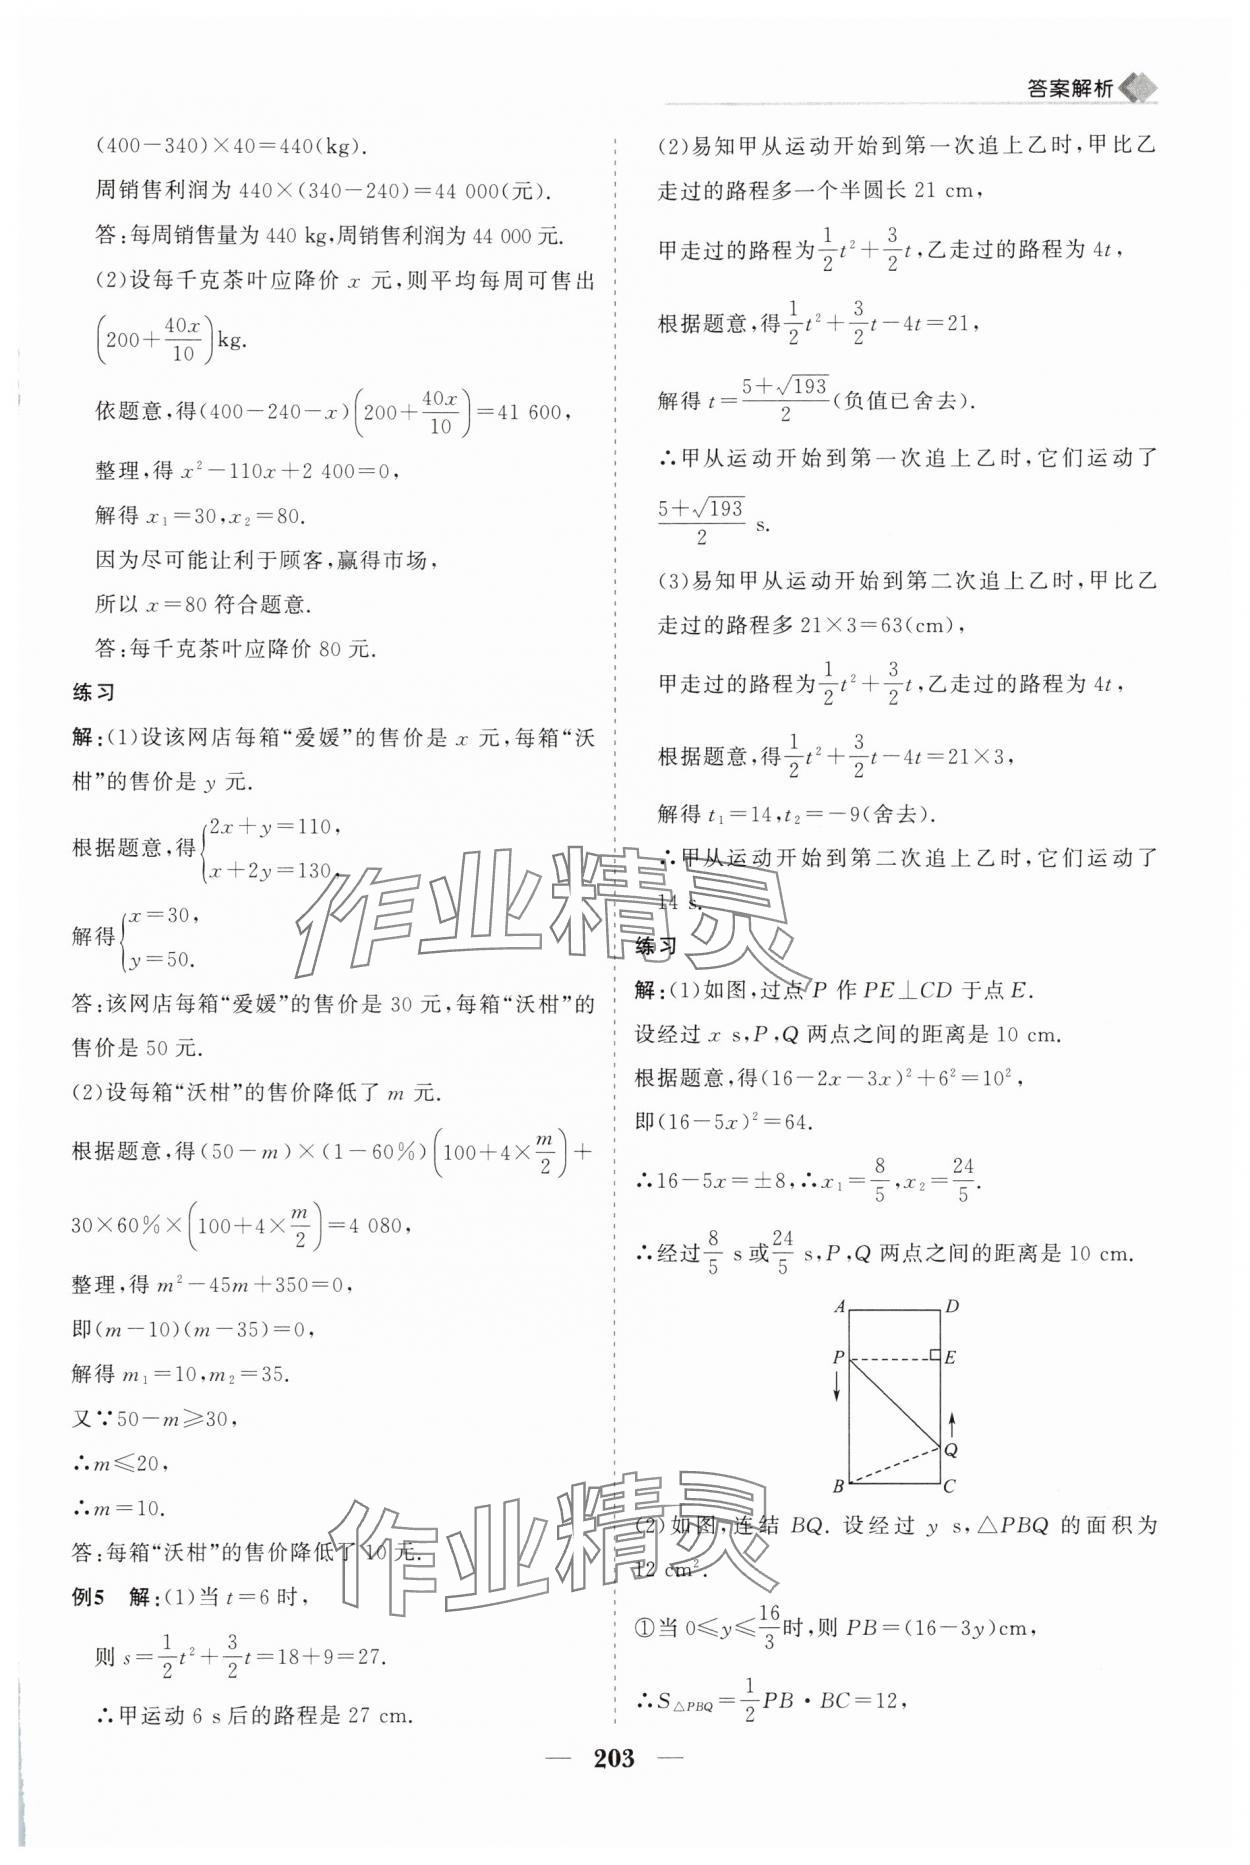 答案解析
(400－340)×40＝440(kg).
周销售利润为 440×(340－240)＝44 000(元).
答:每周销售量为 440 kg,周销售利润为 44 000 元.
(2)设每千克茶叶应降价 x 元,则平均每周可售出
(200＋40x/10)kg.
依题意,得(400－240－x)(200＋40x/10)＝41 600,
整理,得 x²－110x＋2 400＝0,
解得 x₁＝30,x₂＝80.
因为尽可能让利于顾客,赢得市场,
所以 x＝80 符合题意.
答:每千克茶叶应降价 80 元.
练习
解:(1)设该网店每箱“爱媛”的售价是 x 元,每箱“沃
柑”的售价是 y 元.
根据题意,得{2x＋y＝110,
x＋2y＝130,
解得{x＝30,
y＝50.
答:该网店每箱“爱媛”的售价是 30 元,每箱“沃柑”的
售价是 50 元.
(2)设每箱“沃柑”的售价降低了 m 元.
根据题意,得(50－m)×(1－60%)(100＋4×m/2)＋
30×60%×(100＋4×m/2)＝4 080,
整理,得 m²－45m＋350＝0,
即(m－10)(m－35)＝0,
解得 m₁＝10,m₂＝35.
又∵50－m≥30,
∴m≤20,
∴m＝10.
答:每箱“沃柑”的售价降低了 10 元.
例5 解:(1)当 t＝6 时,
则 s＝1/2t²＋3/2t＝18＋9＝27.
∴甲运动 6 s 后的路程是 27 cm.
(2)易知甲从运动开始到第一次追上乙时,甲比乙
走过的路程多一个半圆长 21 cm,
甲走过的路程为1/2t²＋3/2t,乙走过的路程为 4t,
根据题意,得1/2t²＋3/2t－4t＝21,
解得 t＝(5＋√193)/2(负值已舍去).
∴甲从运动开始到第一次追上乙时,它们运动了
(5＋√193)/2 s.
(3)易知甲从运动开始到第二次追上乙时,甲比乙
走过的路程多 21×3＝63(cm),
甲走过的路程为1/2t²＋3/2t,乙走过的路程为 4t,
根据题意,得1/2t²＋3/2t－4t＝21×3,
解得 t₁＝14,t₂＝－9(舍去).
∴甲从运动开始到第二次追上乙时,它们运动了
14 s.
练习
解:(1)如图,过点 P 作 PE⊥CD 于点 E.
设经过 x s,P,Q 两点之间的距离是 10 cm.
根据题意,得(16－2x－3x)²＋6²＝10²,
即(16－5x)²＝64.
∴16－5x＝±8,∴x₁＝8/5,x₂＝24/5.
∴经过8/5 s 或24/5 s,P,Q 两点之间的距离是 10 cm.
A D
P E
Q
B C
(2)如图,连结 BQ. 设经过 y s,△PBQ 的面积为
12 cm².
①当 0≤y≤16/3时,则 PB＝(16－3y)cm,
∴S△PBQ＝1/2PB·BC＝12,
— 203 —
作业精灵
作业精灵